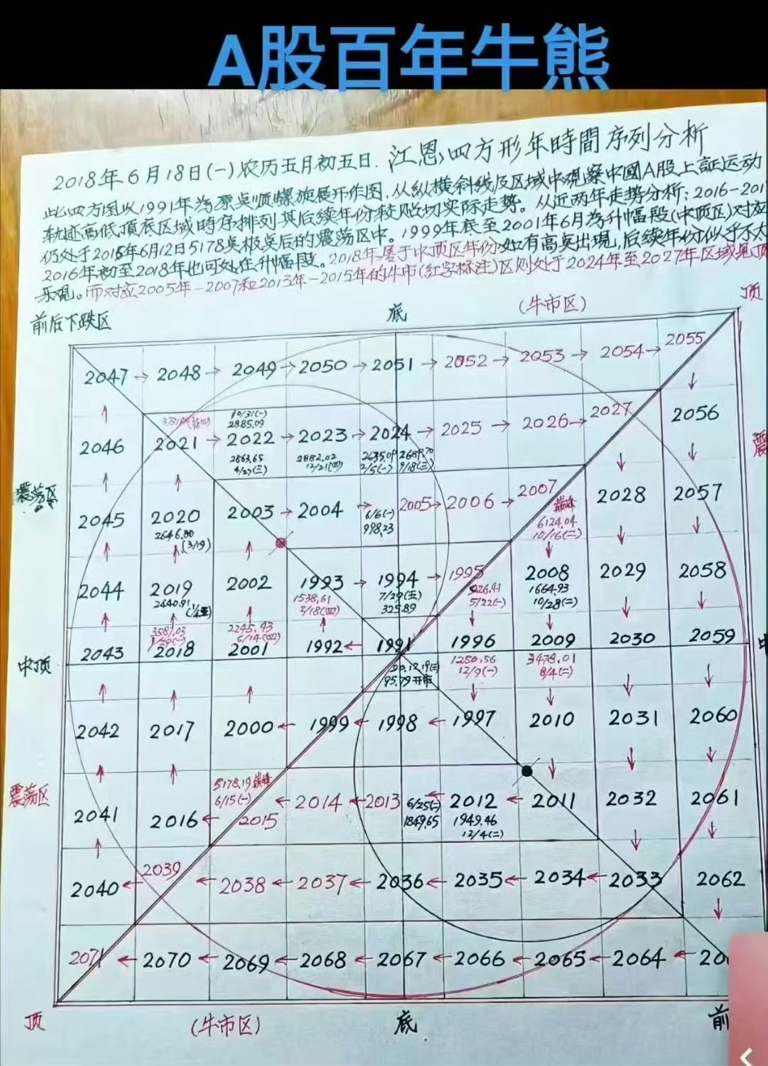 A股百年牛熊
2018年6月18日(一)农历五月初五日.江恩四方形年時間序列分析
此四方图以1991年为原点顺螺旋展开作图.从纵横斜线及区域中观察中國A股上証运动
轨迹高低顶底区域時序排列其后续年份较贴切实际走势。从近两年走势分析:2016-201
仍处于2015年6月12日5178点极点后的震荡区中。1999年底至2001年6月为升幅段(中顶区)对应
2016年初至2018年也可处在升幅段。2018年属于中顶区年份处有高点出現,后续年份似乎不太
乐观。而对应2005年-2007和2013年-2015年的牛市(红字标注)区则处于2024年至2027年区域見顶
顶
前后下跌区 底 (牛市区)
2047 → 2048 → 2049 → 2050 → 2051 → 2052 → 2053 → 2054 → 2055
10/31(一)
2885.09
2046 2021 → 2022 → 2023 → 2024 → 2025 → 2026 → 2027 2056
2863.65 2882.02 2635.09 2689.70
4/27(三) 12/21(四) 2/5(一) 9/18(三)
震荡区 震
2045 2020 2003 → 2004 2005 → 2006 → 2007 2028 2057
2646.80 6/6(一) 巅峰
(3/19) 998.23 6124.04
10/16(二)
2044 2019 2002 1993 → 1994 → 1995 2008 2029 2058
2440.91 1538.61 7/29(五) 926.41 1664.93
2/18(四) 325.89 5/22(一) 10/28(二)
3587.03 2245.43
6/14(四)
中顶 2043 2018 2001 1992 ← 1991 1996 2009 2030 2059 中
90.12.19(三) 1250.56 3478.01
95.79开市 12/9(一) 8/4(二)
2042 2017 2000 ← 1999 ← 1998 ← 1997 2010 2031 2060
5178.19巅峰
震荡区 6/15(一)
2041 2016 ← 2015 ← 2014 ← 2013 ← 2012 ← 2011 2032 2061
6/25(二) 1949.46
1849.65 12/4(二)
2040 ← 2039 ← 2038 ← 2037 ← 2036 ← 2035 ← 2034 ← 2033 2062
2071 ← 2070 ← 2069 ← 2068 ← 2067 ← 2066 ← 2065 ← 2064 ← 20
顶 (牛市区) 底 前